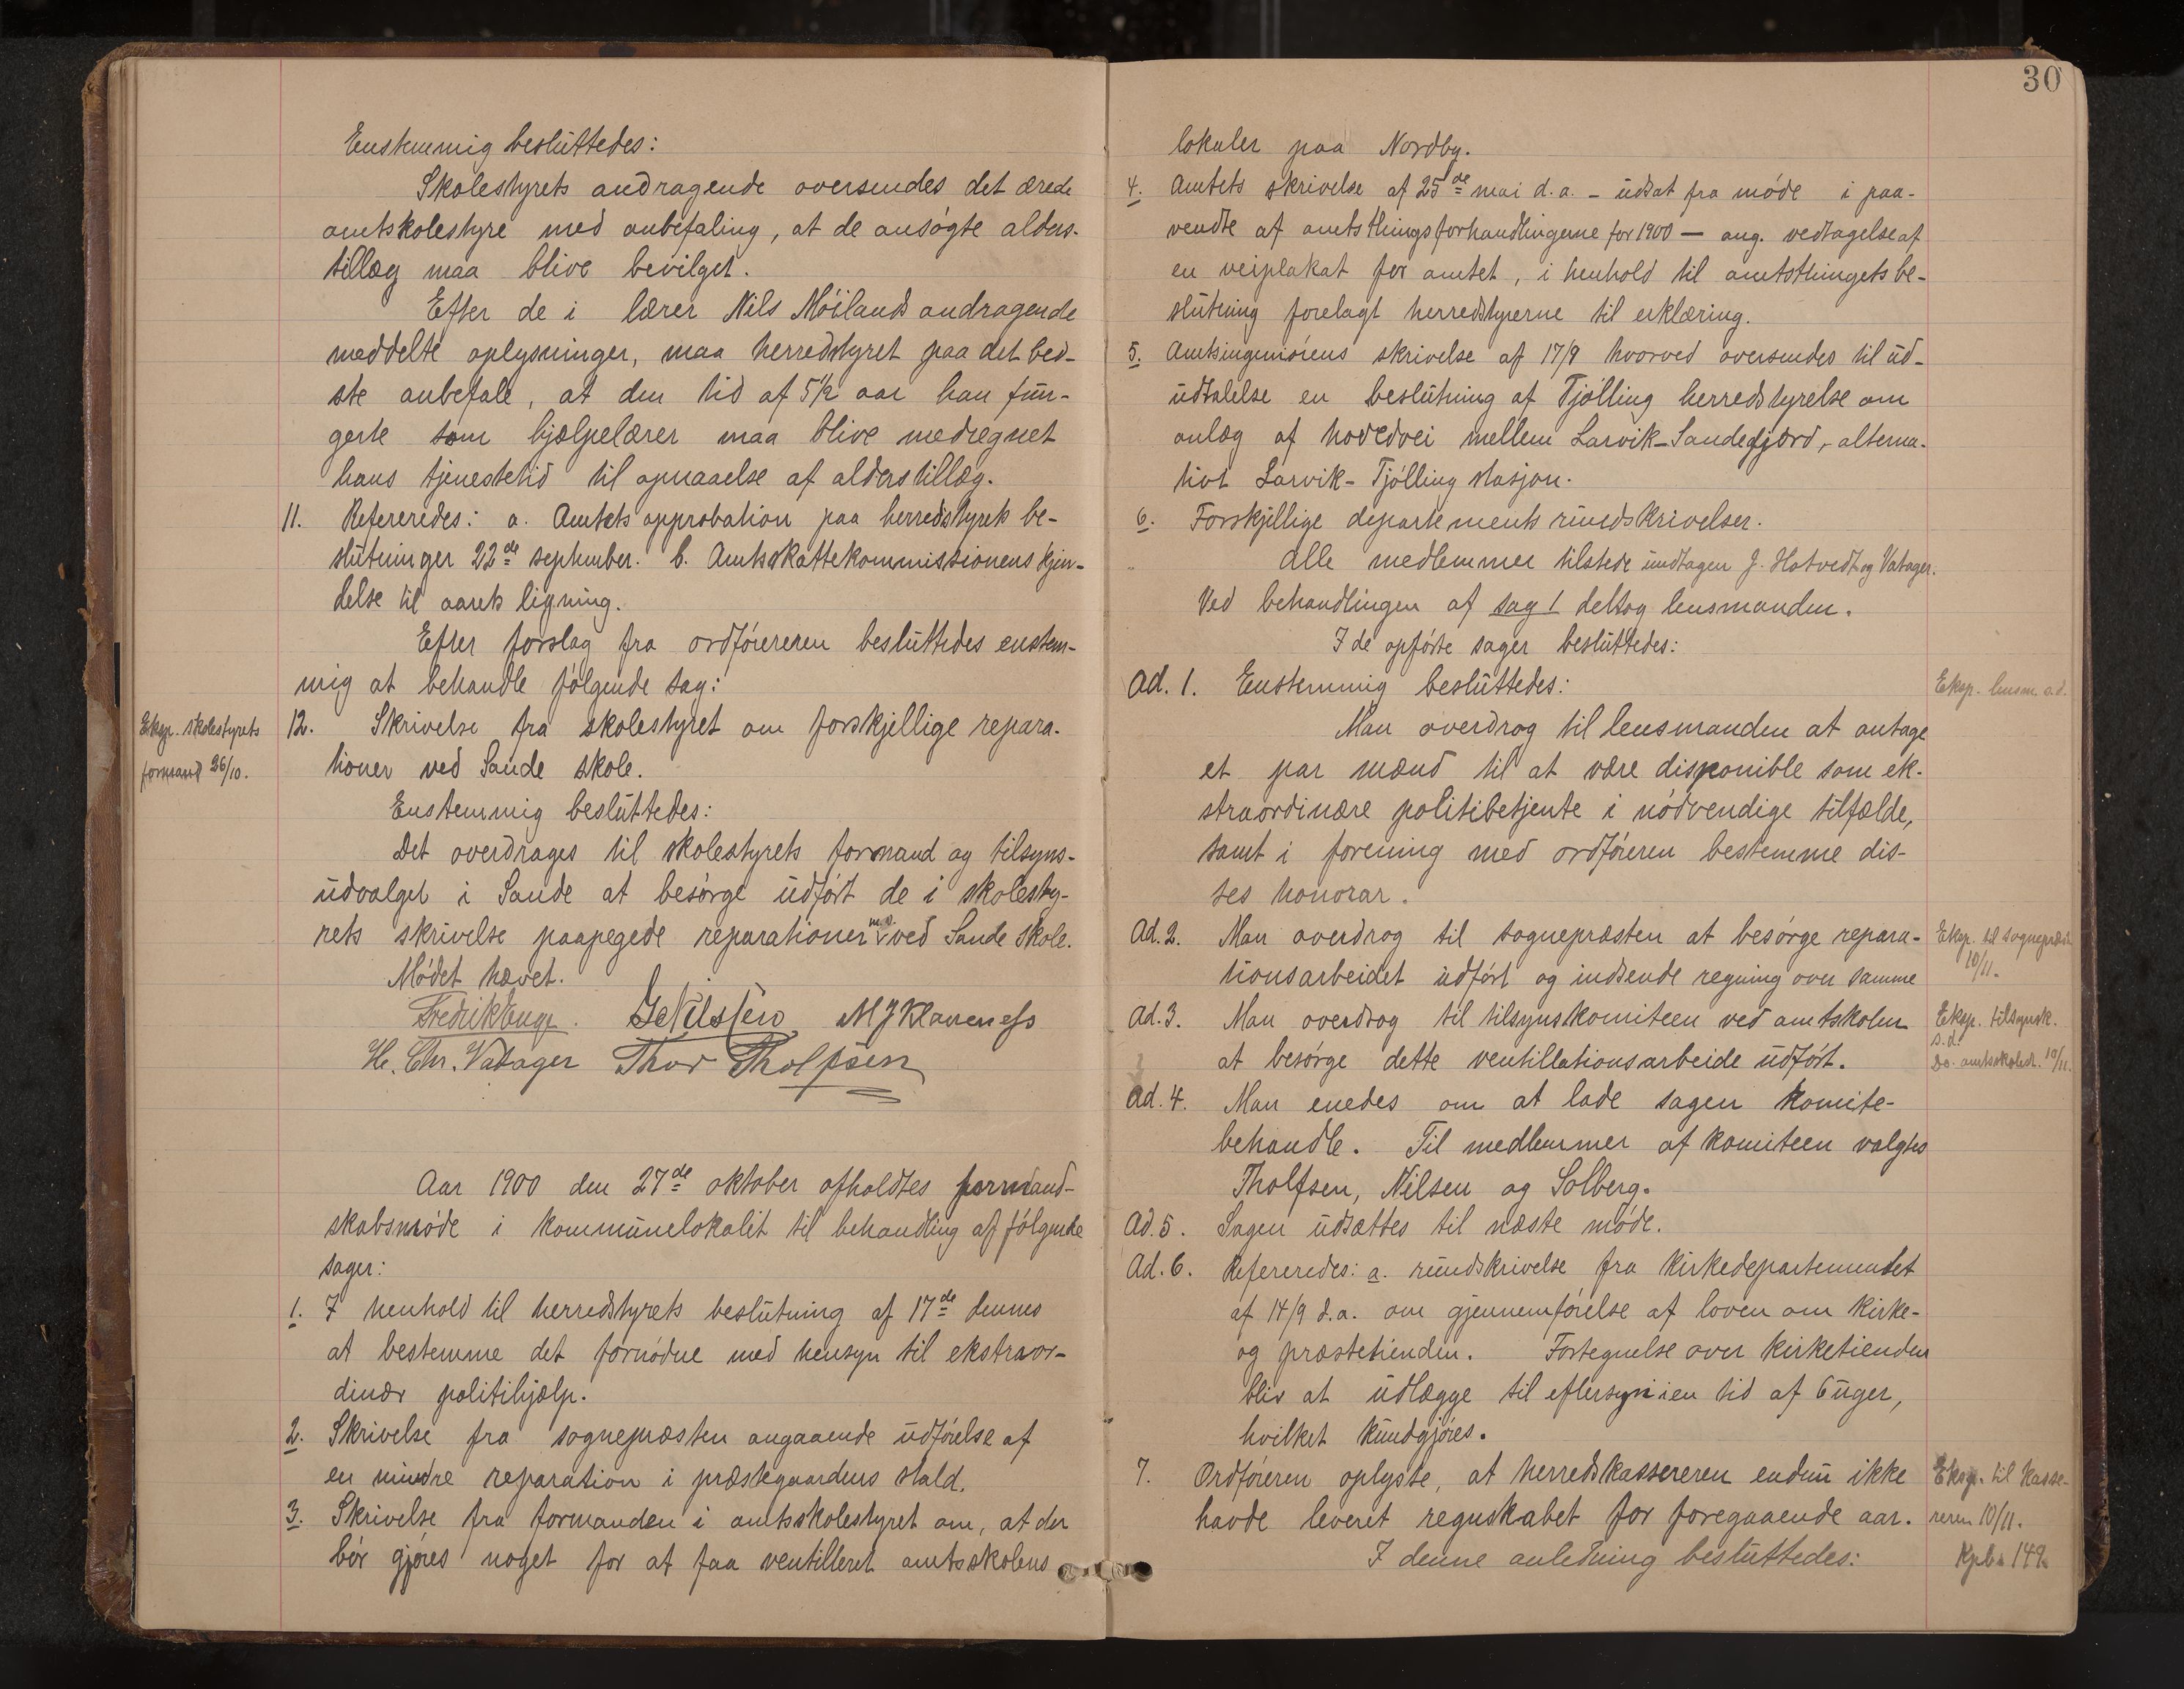 Enstemmig besluttedes:
Skolestyrets andragende oversendes det ærede
amtskolestyre med anbefaling, at de ansøgte alders-
tillæg maa blive bevilget.
Efter de i lærer Nils Möilands andragende
meddelte oplysninger, maa herredstyret paa det bed-
ste anbefale, at den tid af 5½ aar han fun-
gerte som hjælpelærer maa blive medregnet
hans tjenestetid til opnaaelse af alderstillæg.
11. Refereredes: a. Amtets approbation paa herredstyrets be-
slutninger 22de september. b. Amtsskattekommissionens kjen-
delse til aarets ligning.
Efter forslag fra ordföreren besluttedes enstem-
mig at behandle fölgende sag:
Eksp. skolestyrets
formand 26/10.
12. Skrivelse fra skolestyret om forskjellige repara-
tioner ved Sande skole.
Enstemmig besluttedes:
Det overdrages til skolestyrets formand og tilsyns-
udvalget i Sande at besörge udfört de i skolesty-
rets skrivelse paapegede reparationer m.v. ved Sande skole.
Mödet hævet.
Fredrik Bugge. J. Nilsen M J Klaveness
H. Chr. Vatager Thor Tholfsen
Aar 1900 den 27de oktober afholdtes formand-
skabsmöde i kommunelokalet til behandling af fölgende
sager:
1. I henhold til herredstyrets beslutning af 17de dennes
at bestemme det fornödne med hensyn til ekstraor-
dinær politihjælp.
2. Skrivelse fra sognepræsten angaaende udförelse af
en mindre reparation i præstegaardens stald.
3. Skrivelse fra formanden i amtsskolestyret om, at der
bör gjöres noget for at faa ventilleret amtsskolens
30
lokaler paa Nordby.
4. Amtets skrivelse af 25de mai d.a. – udsat fra möde i paa-
vendte af amtsthingsforhandlingerne for 1900 – ang. vedtagelse af
en veiplakat for amtet, i henhold til amtsthingets be-
slutning forelagt herredstyrerne til erklæring.
5. Amtsingeniörens skrivelse af 17/9 hvorved oversendes til ud-
udtalelse en beslutning af Tjölling herredstyrelse om
anlæg af hovedvei mellem Larvik–Sandefjord, alterna-
tivt Larvik–Tjölling stasjon.
6. Forskjellige departements rundskrivelser.
Alle medlemmer tilstede undtagen J. Hotvedt og Vatager.
Ved behandlingen af sag 1 deltog lensmanden.
I de opförte sager besluttedes:
Ad. 1. Enstemmig besluttedes:
Eksp. lensm. s.d.
Man overdrog til lensmanden at antage
et par mænd til at være disponible som ek-
straordinære politibetjente i nödvendige tilfælde,
samt i forening med ordföreren bestemme dis-
ses honorar.
Ad. 2. Man overdrog til sognepræsten at besörge repara-
tionsarbeidet udfört og indsende regning over samme
Eksp. til sognepræsten
10/11.
Ad. 3. Man overdrog til tilsynskomiteen ved amtskolen
at besörge dette ventillationsarbeide udfört.
Eksp. tilsynsk.
s.d.
Do. amtsskolest. 10/11.
Ad. 4. Man enedes om at lade sagen komite-
behandle. Til medlemmer af komiteen valgtes
Tholfsen, Nilsen og Solberg.
Ad. 5. Sagen udsættes til næste möde.
Ad. 6. Refereredes: a. rundskrivelse fra Kirkedepartementet
af 14/9 d.a. om gjennemförelse af loven om kirke-
og præstetienden. Fortegnelse over kirketienden
bliv at udlægge til eftersyn i en tid af 6 uger,
hvilket kundgjöres.
7. Ordföreren oplyste, at herredskassereren endnu ikke
havde leveret regnskabet for foregaaende aar.
Eksp. til kasse-
reren 10/11.
Kpb. 149.
I denne anledning besluttedes: